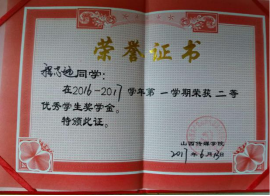 荣誉证书
同学：
在2016-2017学年第一学期荣获二等
优秀学生奖学金。
特颁此证。
山西传媒学院
2017年6月